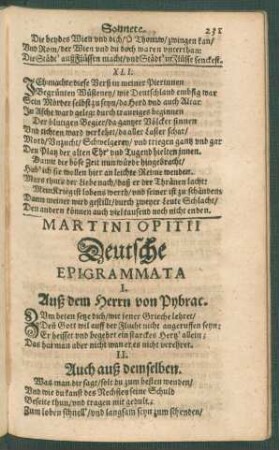 Sonnete. 231
Die beydes Wien und dich / O Thonaw / zwingen kan /
Und Rom / der Wien und du doch waren unterthan:
Die Städt' auß Flüssen macht / und Städt' in Flüsse senckest.
XLI.
Ich machte diese Verß in meiner Pierinnen
Begrünten Wüsteney / wie Deutschland embsig war
Sein Mörder selbst zu seyn / da Herd und auch Altar
In Asche ward gelegt durch trauriges beginnen
Der blutigen Begier / da gantzer Völcker sinnen
Und tichten ward verkehrt / da aller Laster schar /
Mord / Unzucht / Schwelgerey / und triegen gantz und gar
Den Platz der alten Ehr' und Tugend hielten innen.
Damit die böse Zeit nun würde hingebracht /
Hab' ich sie wollen hier an leichte Reime wenden.
Mars thut's der Liebe nach / daß er der Thränen lacht:
Mein Krieg ist lobens werth / und seiner ist zu schänden:
Dann meiner wird gestillt / durch zweyer Leute Schlacht /
Den andern können auch viel tausend noch nicht enden.
MARTINI OPITII
Deutsche
EPIGRAMMATA
I.
Auß dem Herrn von Pybrac.
Zum beten setze dich / wie jener Grieche lehret /
Denn Gott wil auff der Flucht nicht angeruffen seyn:
Er heisset und begehrt ein starckes Hertz' allein;
Das hat man aber nicht wan er es nicht verehret.
II.
Auch auß demselben.
Was man dir sagt / solt du zum besten wenden /
Und wie du kanst des Nechsten seine Schuld
Beseite thun / und tragen mit gedult.
Zum loben schnell' / und langsam seyn zum schenden /